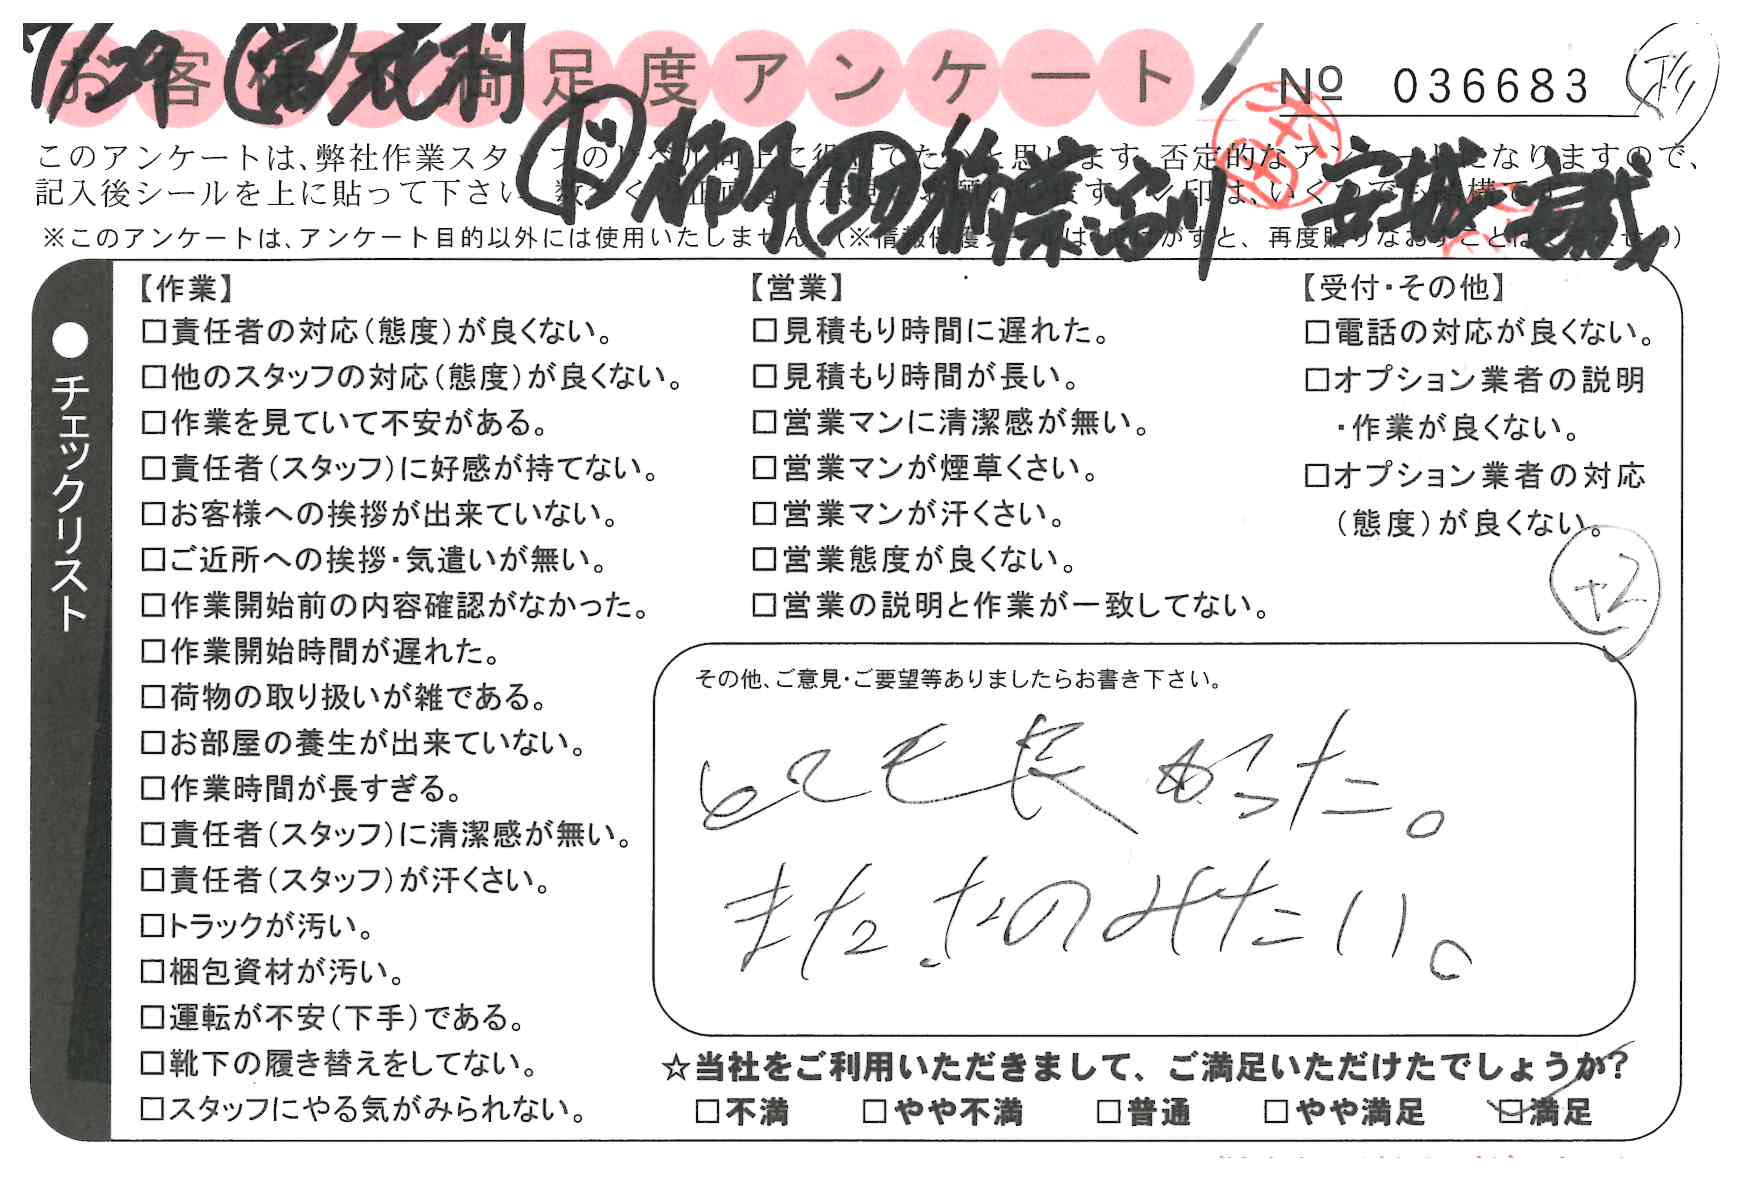 7/29
お客様不満足度アンケート
№ 036683
このアンケートは、弊社作業スタッフのレベル向上に役立てたいと思います。否定的なアンケートになりますので、
記入後シールを上に貼って下さい。
※このアンケートは、アンケート目的以外には使用いたしません。
安城
チェックリスト
【作業】
□責任者の対応(態度)が良くない。
□他のスタッフの対応(態度)が良くない。
□作業を見ていて不安がある。
□責任者(スタッフ)に好感が持てない。
□お客様への挨拶が出来ていない。
□ご近所への挨拶・気遣いが無い。
□作業開始前の内容確認がなかった。
□作業開始時間が遅れた。
□荷物の取り扱いが雑である。
□お部屋の養生が出来ていない。
□作業時間が長すぎる。
□責任者(スタッフ)に清潔感が無い。
□責任者(スタッフ)が汗くさい。
□トラックが汚い。
□梱包資材が汚い。
□運転が不安(下手)である。
□靴下の履き替えをしてない。
□スタッフにやる気がみられない。
【営業】
□見積もり時間に遅れた。
□見積もり時間が長い。
□営業マンに清潔感が無い。
□営業マンが煙草くさい。
□営業マンが汗くさい。
□営業態度が良くない。
□営業の説明と作業が一致してない。
【受付・その他】
□電話の対応が良くない。
□オプション業者の説明
・作業が良くない。
□オプション業者の対応
(態度)が良くない。
+2
その他、ご意見・ご要望等ありましたらお書き下さい。
とても良かった。
また、たのみたい。
☆当社をご利用いただきまして、ご満足いただけたでしょうか?
□不満 □やや不満 □普通 □やや満足 □満足